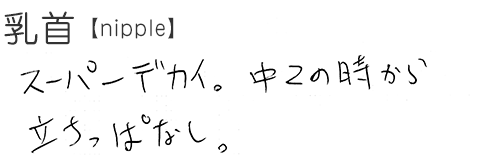 乳首【nipple】
スーパーデカイ。中2の時から
立ちっぱなし。